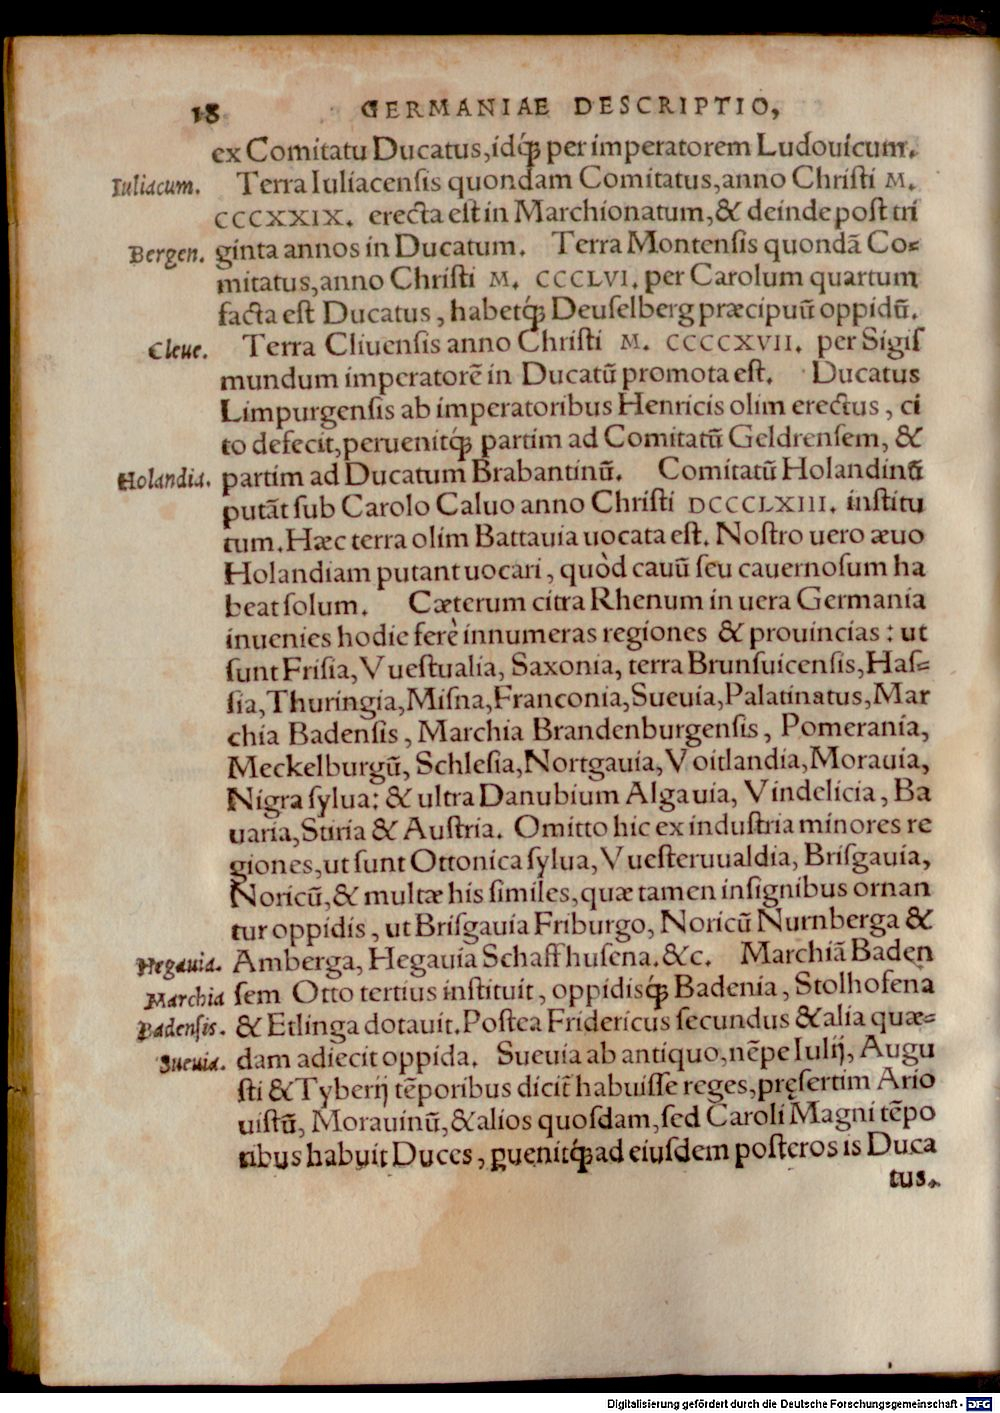 18 GERMANIAE DESCRIPTIO,
ex Comitatu Ducatus, idq́ꝫ per imperatorem Ludouicum.
Iuliacum. Terra Iuliacensis quondam Comitatus, anno Christi M.
CCCXXIX. erecta est in Marchionatum, & deinde post tri
Bergen. ginta annos in Ducatum. Terra Montensis quondā Co-
mitatus, anno Christi M. CCCLVI. per Carolum quartum
facta est Ducatus, habetq́ꝫ Deuselberg præcipuū oppidū.
Cleue. Terra Cliuensis anno Christi M. CCCCXVII. per Sigis
mundum imperatorē in Ducatū promota est. Ducatus
Limpurgensis ab imperatoribus Henricis olim erectus, ci
to defecit, peruenitq́ꝫ partim ad Comitatū Geldrensem, &
Holandia. partim ad Ducatum Brabantinū. Comitatū Holandinū
putāt sub Carolo Caluo anno Christi DCCCLXIII. institu
tum. Hæc terra olim Battauia uocata est. Nostro uero æuo
Holandiam putant uocari, quòd cauū seu cauernosum ha
beat solum. Cæterum citra Rhenum in uera Germania
inuenies hodie ferè innumeras regiones & prouincias: ut
sunt Frisia, Vuestualia, Saxonia, terra Brunsuicensis, Has-
sia, Thuringia, Misna, Franconia, Sueuia, Palatinatus, Mar
chia Badensis, Marchia Brandenburgensis, Pomerania,
Meckelburgū, Schlesia, Nortgauia, Voitlandia, Morauia,
Nigra sylua: & ultra Danubium Algauia, Vindelicia, Ba
uaria, Stiria & Austria. Omitto hic ex industria minores re
giones, ut sunt Ottonica sylua, Vuesteruualdia, Brisgauia,
Noricū, & multæ his similes, quæ tamen insignibus ornan
tur oppidis, ut Brisgauia Friburgo, Noricū Nurnberga &
Hegauia. Amberga, Hegauia Schaffhusena. &c. Marchiā Baden
Marchia sem Otto tertius instituit, oppidisq́ꝫ Badenia, Stolhofena
Badensis. & Etlinga dotauit. Postea Fridericus secundus & alia quæ-
Sueuia. dam adiecit oppida. Sueuia ab antiquo, nēpe Iulij, Augu
sti & Tyberij tēporibus dicit̃ habuisse reges, pręsertim Ario
uistū, Morauinū, & alios quosdam, sed Caroli Magni tēpo
ribus habuit Duces, ꝑuenitq́ꝫ ad eiusdem posteros is Duca
tus.
Digitalisierung gefördert durch die Deutsche Forschungsgemeinschaft - DFG